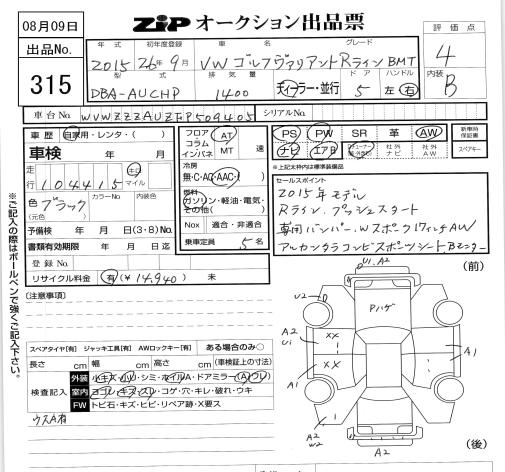 08月09日
ZIP オークション出品票
出品No.
315
年式 初年度登録 車名 グレード
2015 26年9月 VW ゴルフヴァリアントRライン BMT
型式 排気量 ドア ハンドル
DBA-AUCHP 1400 ディーラー・並行 5 左 右
評価点
4
内装
B
車台No. WVWZZZAUZFP509405
シリアルNo.
車歴 自家用・レンタ・( )
車検 年 月
走行 104415 キロ マイル
色 ブラック
(元色)
カラーNo 内装色
予備検 年 月 日(3・8)No.
書類有効期限 年 月 日迄
登録No.
リサイクル料金 有(¥14,940) 未
フロア
コラム
インパネ
AT
MT 速
冷房
無・C・AC・AAC・( )
燃料
ガソリン・軽油・電気・
その他( )
Nox 適合・非適合
乗車定員 5 名
PS PW SR 革 AW
ナビ エアB 社外ナビ 社外AW
新車時保証書
スペアキー
※上記太枠内は標準装備品
セールスポイント
2015年モデル
Rライン プッシュスタート
専用バンパー.Wスポーク17インチAW
アルカンタラコンビスポーツシート.Bモニター
※ご記入の際はボールペンで強くご記入下さい。
(注意事項)
スペアタイヤ[有] ジャッキ工具[有] AWロックキー[有] ある場合のみ○
長さ cm 幅 cm 高さ cm (車検証上の寸法)
検査記入
外装 小キズ・小U・シミ・ホイルA・ドアミラー(A・ワレ)
室内 ヨゴレ・キズ・スレ・コゲ・穴・キレ・破れ・ウキ
FW トビ石・キズ・ヒビ・リペア跡・X要ス
ウスA有
(前)
U1.A2
U2
Pハゲ
A2
U1
XX
XX
A1
A1
A2
W2
A2
(後)